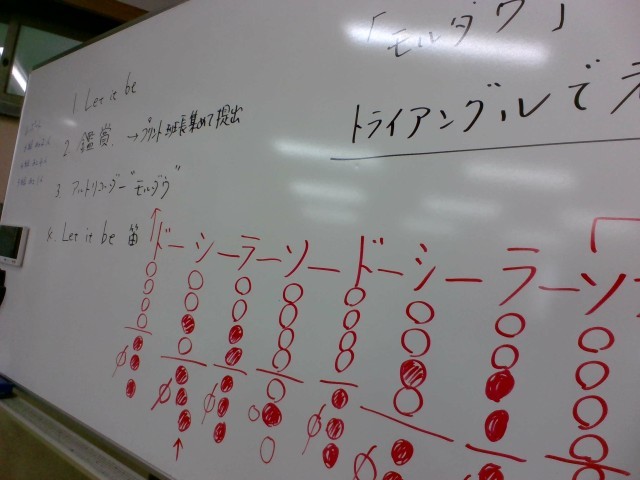 「モルダウ」
トライアングルで
1 Let it be
2. 鑑賞. →プリント班長集めて提出
3. アルトリコーダー"モルダウ"
4. Let it be 笛
ド―シ―ラ―ソ―ド―シ―ラ―ソ